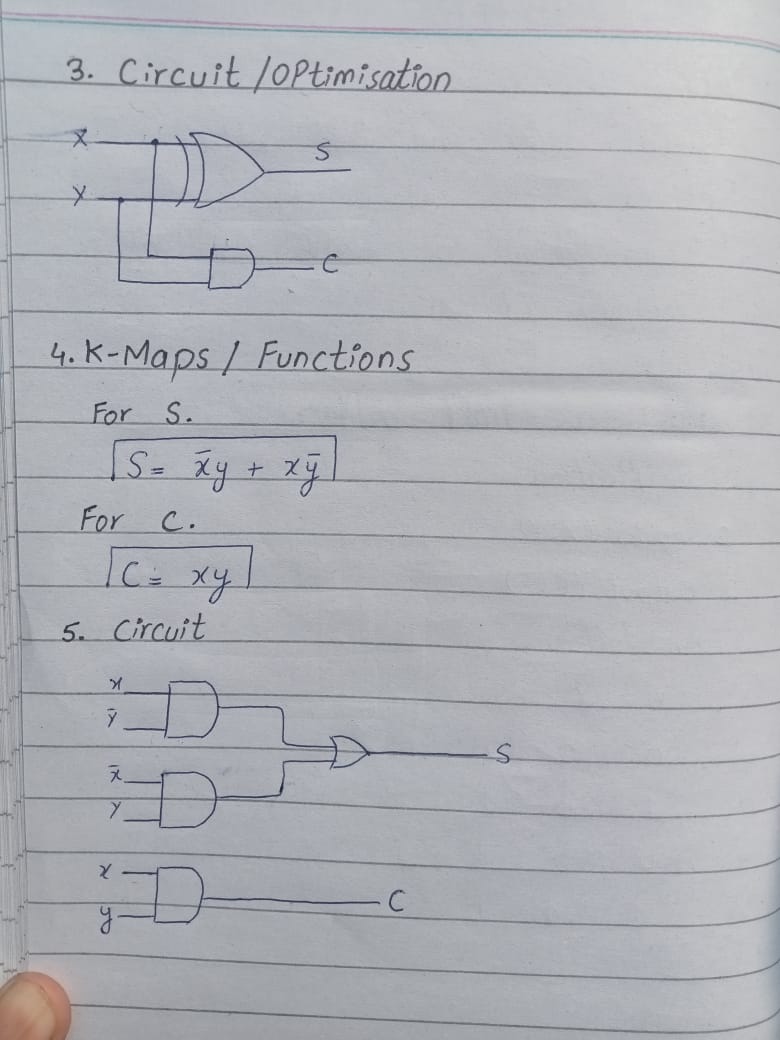 3. Circuit /OPtimisation
X
S
Y
C
4. K-Maps / Functions
For S.
S= x̄y + xȳ
For C.
C= xy
5. Circuit
x
ȳ
S
x̄
y
x
C
y